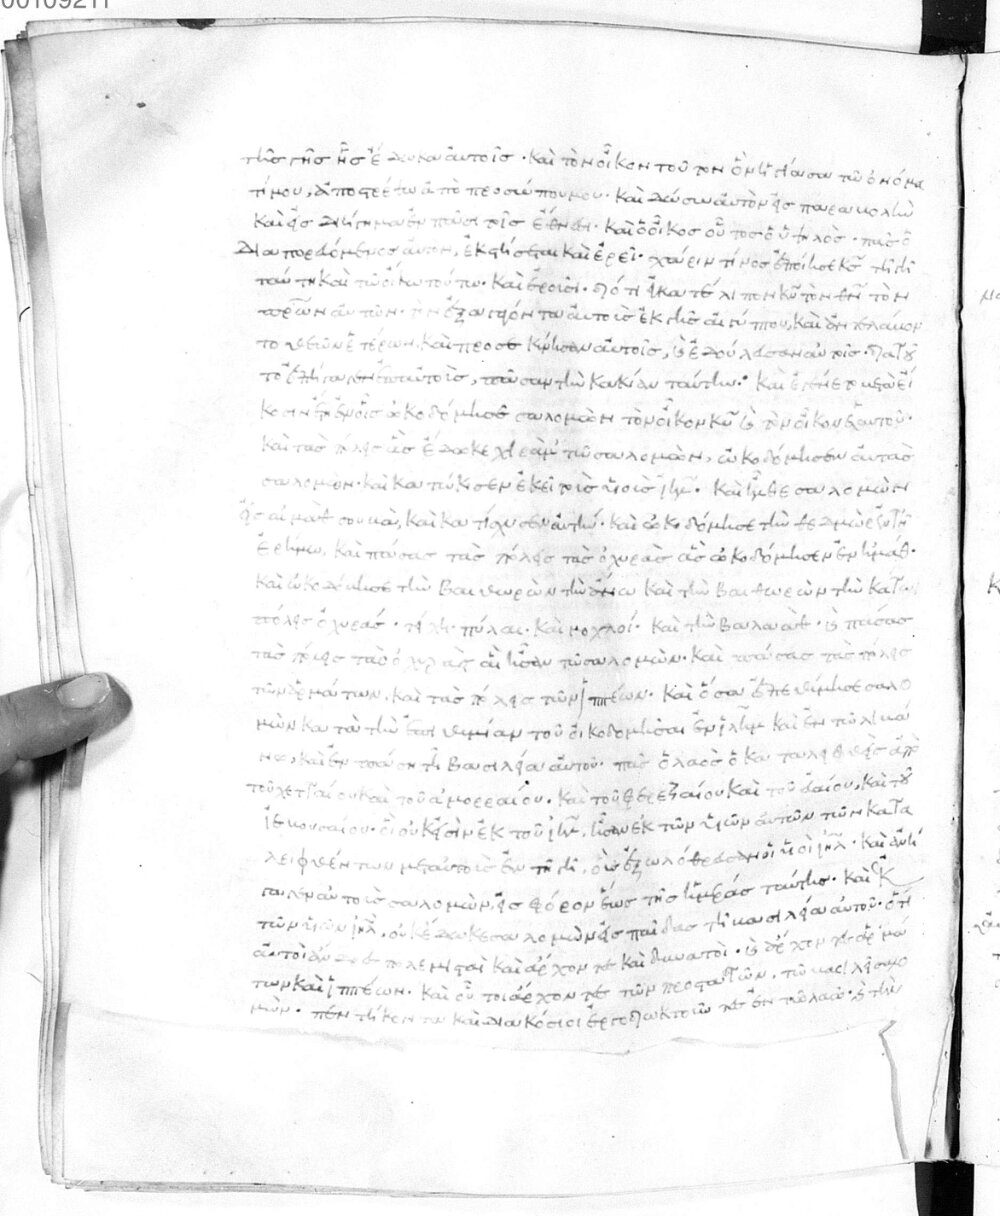 00109211
τῆς γῆς ἧς ἔδωκα αὐτοῖς · καὶ τὸν οἶκον τοῦτον ὃν ἡγίασα τῷ ὀνόμα
τί μου, ἀποστρέψω ἀπὸ προσώπου μου · καὶ δώσω αὐτὸν εἰς παραβολὴν
καὶ εἰς διήγημα ἐν πᾶσι τοῖς ἔθνεσι · καὶ ὁ οἶκος οὗτος ὁ ὑψηλὸς · πᾶς ὁ
διαπορευόμενος αὐτὸν, ἐκστήσεται καὶ ἐρεῖ · χάριν τίνος ἐποίησε κς τῇ γῇ
ταύτῃ καὶ τῷ οἴκῳ τούτῳ · καὶ ἐροῦσι · διότι ἐγκατέλιπον κν τὸν θν τὸν
πρων αὐτῶν · τὸν ἐξαγαγόντα αὐτοὺς ἐκ γῆς αἰγύπτου, καὶ ἀντελάβον
το θεῶν ἑτέρων · καὶ προσεκύνησαν αὐτοῖς, καὶ ἐδούλευσαν αὐτοῖς · διὰ τοῦ
το ἐπήγαγεν ἐπ αὐτοῖς, πᾶσαν τὴν κακίαν ταύτην · καὶ ἐγένετο μετὰ εἴ
κοσιν ἔτη ἐν οἷς ὠκοδόμησε σαλομὼν τὸν οἶκον κυ καὶ τὸν οἶκον ἑαυτοῦ ·
καὶ τὰς πόλεις ἃς ἔδωκε χιρὰμ τῷ σαλομὼν, ὠκοδόμησεν αὐτὰς
σαλομὼν · καὶ κατῴκισεν ἐκεῖ τοὺς υἱοὺς ιηλ · καὶ ἦλθε σαλομὼν
εἰς αἰμὰθ σουβὰ, καὶ κατίσχυσεν αὐτὴν · καὶ ὠκοδόμησε τὴν θεδμὼρ ἐν τῇ
ἐρήμῳ, καὶ πάσας τὰς πόλεις τὰς ὀχυρὰς ἃς ὠκοδόμησεν ἐν ἠμάθ ·
καὶ ὠκοδόμησε τὴν βαιθωρὼν τὴν ἄνω καὶ τὴν βαιθωρὼν τὴν κάτω,
πόλεις ὀχυράς · τείχη · πύλαι · καὶ μοχλοί · καὶ τὴν βαλαάθ · καὶ πάσας
τὰς πόλεις τὰς ὀχυρὰς αἳ ἦσαν τῷ σαλομὼν · καὶ πάσας τὰς πόλεις
τῶν ἁρμάτων, καὶ τὰς πόλεις τῶν ἱππέων · καὶ ὅσα ἐπεθύμησε σαλο
μὼν κατὰ τὴν ἐπιθυμίαν τοῦ οἰκοδομῆσαι ἐν ιλημ καὶ ἐν τῷ λιβά
νῳ, καὶ ἐν πάσῃ τῇ βασιλείᾳ αὐτοῦ · πᾶς ὁ λαὸς ὁ καταλειφθεὶς ἀπὸ
τοῦ χετταίου καὶ τοῦ ἀμορραίου, καὶ τοῦ φερεζαίου καὶ τοῦ εὐαίου, καὶ τοῦ
ἰεβουσαίου · οἳ οὐκ εἰσὶν ἐκ τοῦ ιηλ, ἦσαν ἐκ τῶν υἱῶν αὐτῶν τῶν κατα
λειφθέντων μετ αὐτοὺς ἐν τῇ γῇ, οὓς οὐκ ἐξωλόθρευσαν οἱ υἱοὶ ιηλ · καὶ ἀνή
γαγεν αὐτοὺς σαλομὼν, εἰς φόρον ἕως τῆς ἡμέρας ταύτης · καὶ ἐκ
τῶν υἱῶν ιηλ, οὐκ ἔδωκε σαλομὼν εἰς παῖδας τῇ βασιλείᾳ αὐτοῦ · ὅτι
αὐτοὶ ἄνδρες πολεμισταὶ καὶ ἄρχοντες καὶ δυνατοὶ · καὶ ἄρχοντες ἁρμά
των καὶ ἱππέων · καὶ οὗτοι ἄρχοντες τῶν προστατῶν, τῷ βασιλεῖ σαλο
μὼν · πεντήκοντα καὶ διακόσιοι ἐργοδιωκτοῦντες ἐν τῷ λαῷ · καὶ τὴν